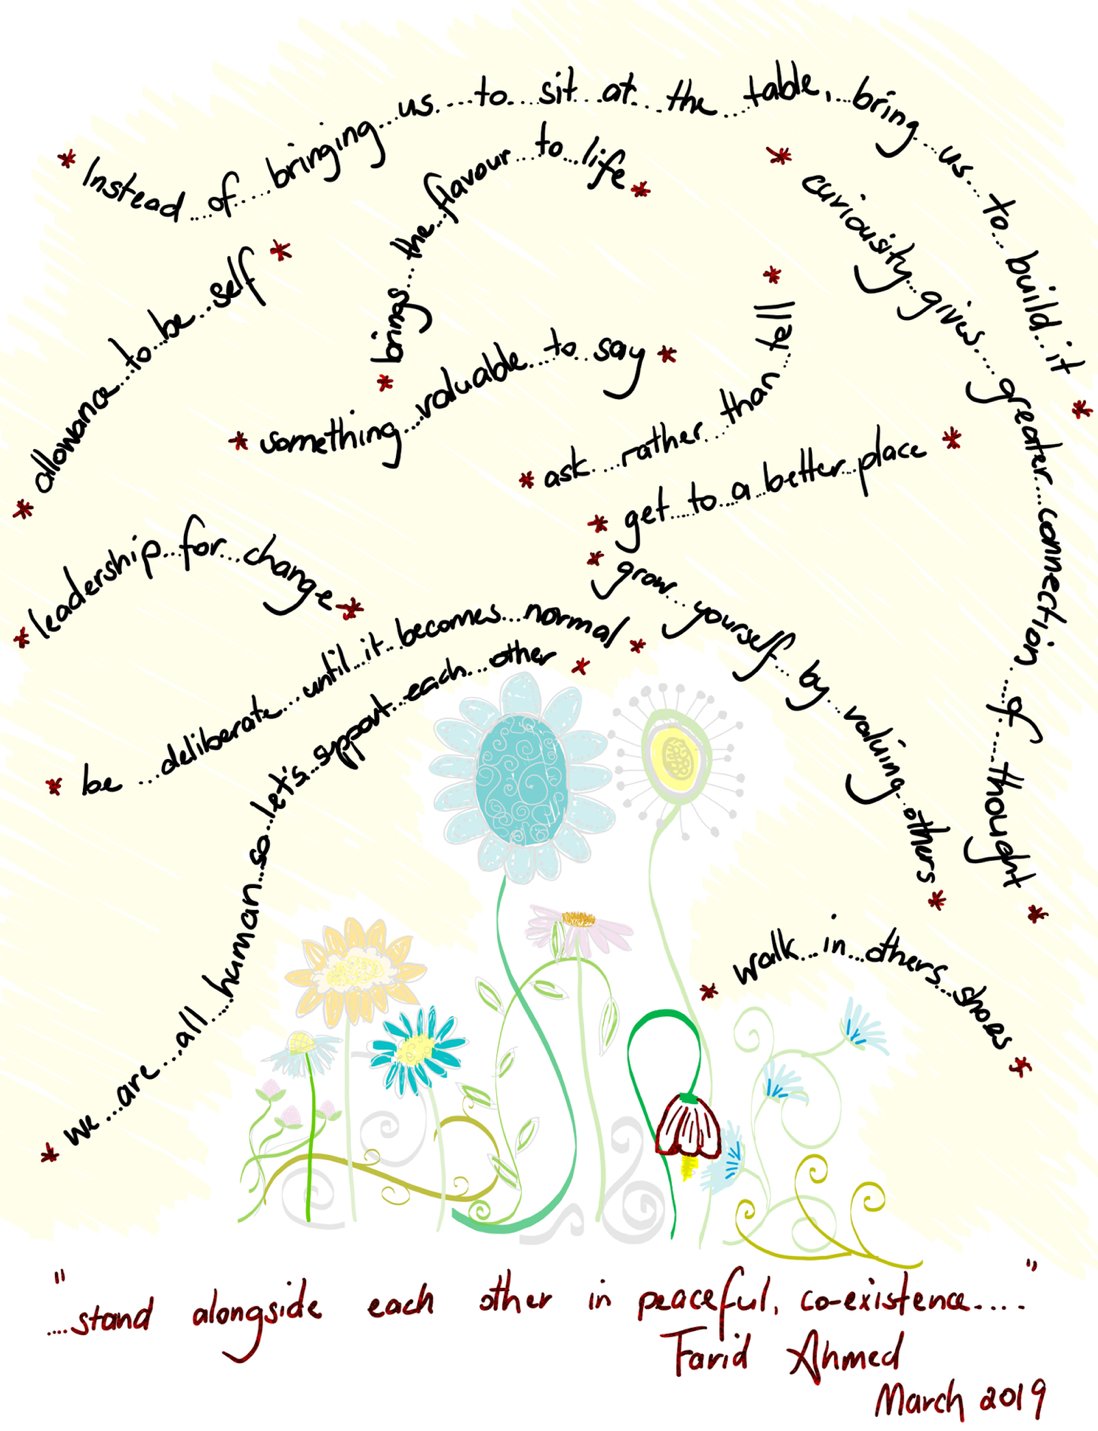 * Instead...of....bringing...us....to...sit...at...the...table,...bring...us...to...build...it *
* brings...the...flavour...to...life *
* curiousity...gives...greater...connection...of...thought *
* allowance...to...be...self *
* something...valuable...to...say *
* ask...rather...than...tell *
* get...to...a...better...place *
* leadership...for...change *
* grow...yourself...by...valuing...others *
* be...deliberate...until...it...becomes...normal *
* we...are...all...human...so...let's...support...each...other *
* walk...in...others...shoes *
"....stand alongside each other in peaceful, co-existence...."
Farid Ahmed
March 2019